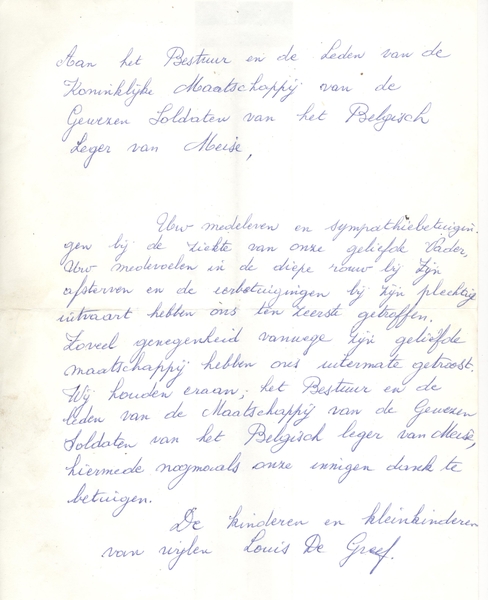 Aan het Bestuur en de Leden van de
Koninklijke Maatschappij van de
Gewezen Soldaten van het Belgisch
Leger van Meise,
Uw medeleven en sympathiebetuigin-
gen bij de ziekte van onze geliefde Vader,
Uw medevoelen in de diepe rouw bij zijn
afsterven en de eerbetuigingen bij zijn plechtige
uitvaart hebben ons ten zeerste getroffen.
Zoveel genegenheid vanwege zijn geliefde
maatschappij hebben ons uitermate getroost.
Wij houden eraan, het Bestuur en de
leden van de Maatschappij van de Gewezen
Soldaten van het Belgisch leger van Meise,
hiermede nogmaals onze innigen dank te
betuigen.
De kinderen en kleinkinderen
van wijlen Louis De Greef.